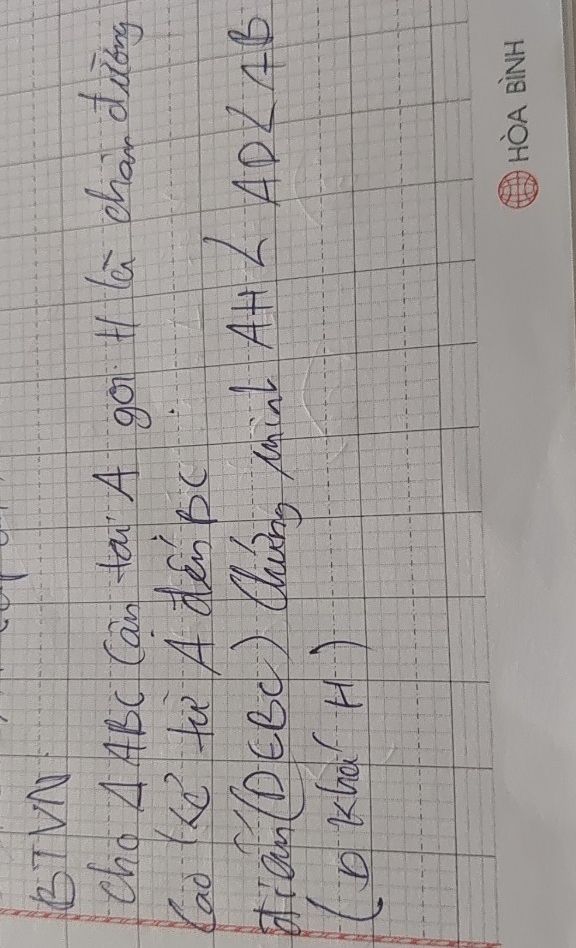 BTVN
Cho Δ ABC Cân tại A gọi H là chân đường
Cao kẻ từ A đến BC
(D∈BC) Chứng minh AH < AD < AB
(D khác H)
HÒA BÌNH